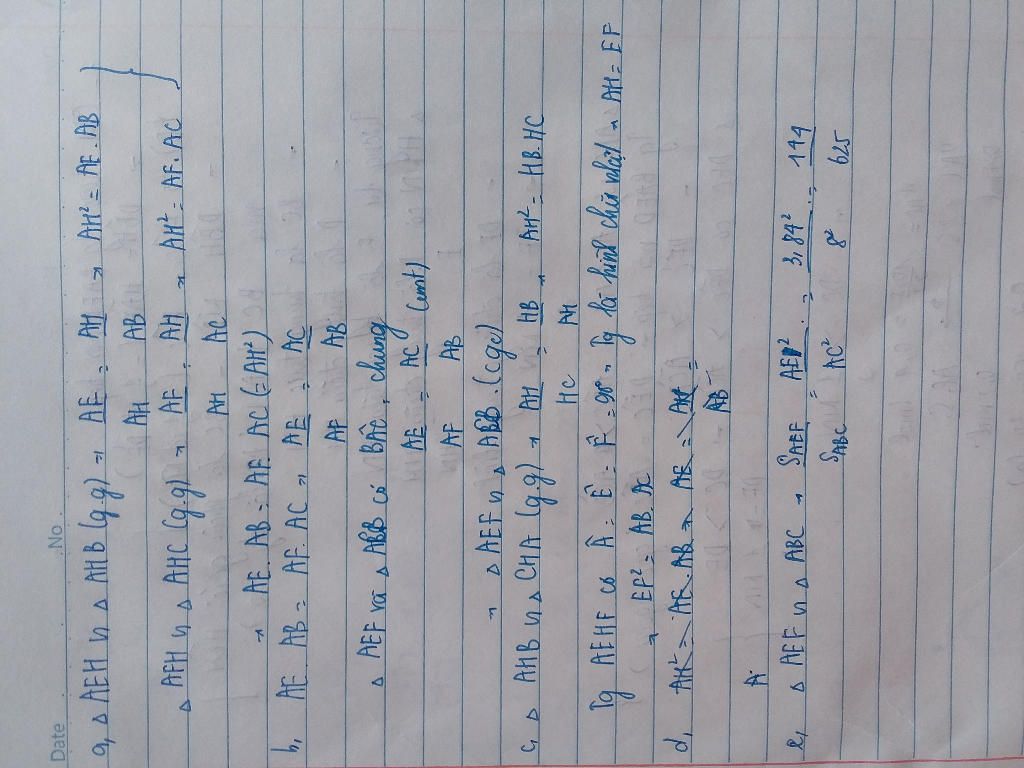 Date No
a, △ AEH ᔕ △ AHB (g.g) → AE/AH = AH/AB → AH² = AE.AB
△ AFH ᔕ △ AHC (g.g) → AF/AH = AH/AC → AH² = AF.AC
→ AE.AB = AF.AC (=AH²)
b, AE.AB = AF.AC → AE/AF = AC/AB
△ AEF và △ ABB có BÂC: chung
AE/AF = AC/AB (cmt)
→ △ AEF ᔕ △ ABB (c.g.c)
c, △ AHB ᔕ △ CHA (g.g) → AH/HC = HB/AH → AH² = HB.HC
Tg AEHF có Â = Ê = F̂ = 90° → Tg là hình chữ nhật → AH = EF
→ EF² = AB.AC
d, AK² = AE.AB → AE = AK/AB =
A
e, △ AEF ᔕ △ ABC → S_AEF/S_ABC = AE²/AC² = 3,84²/8² = 144/625